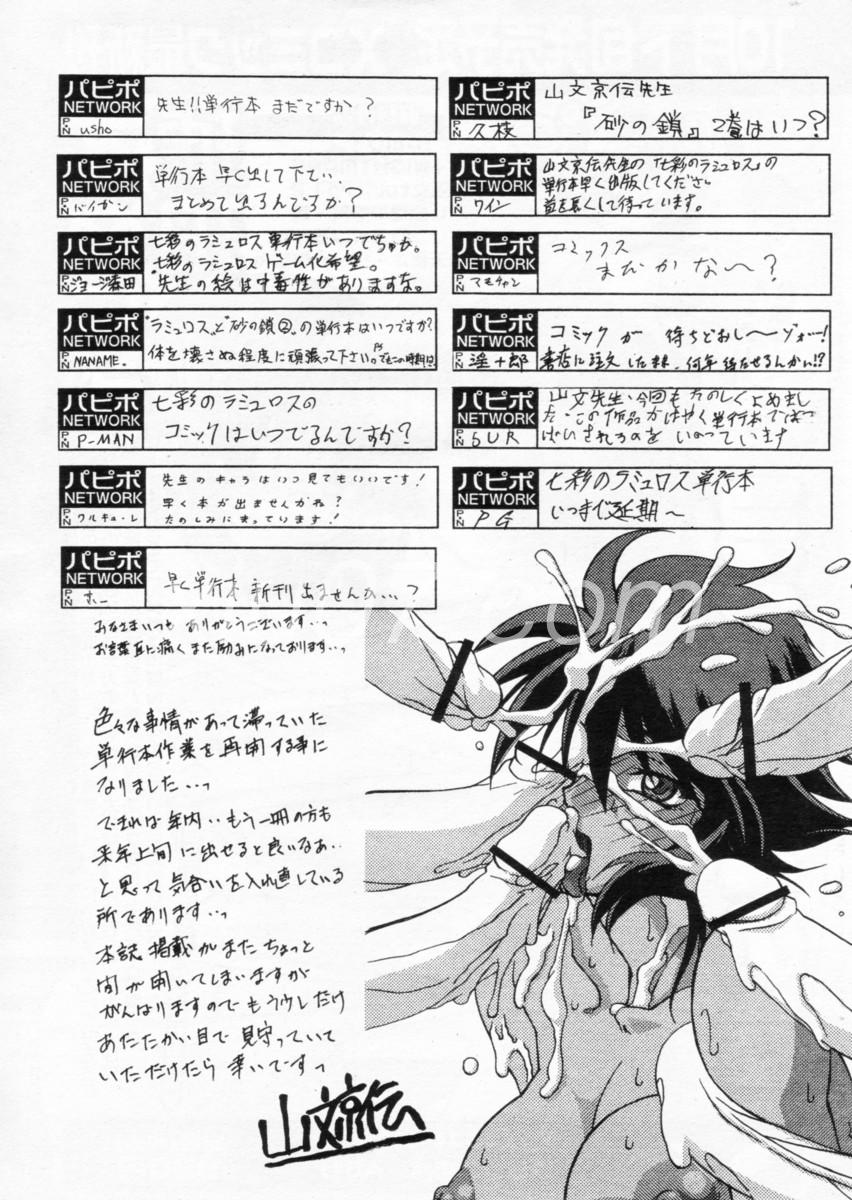 パピポ
NETWORK
PN usho
先生!!単行本 まだですか?
パピポ
NETWORK
PN バイガン
単行本 早く出して下さい..
まとめて出るんですか?
パピポ
NETWORK
PN ジョージ森田
七彩のラミュロス 単行本いつでちゅか。
七彩のラミュロス ゲーム化希望。
先生の絵は中毒性がありますな。
パピポ
NETWORK
PN NANAME.
"ラミュロス"と"砂の鎖②"の単行本はいつですか?
体を壊さぬ程度に頑張って下さい。
パピポ
NETWORK
PN P-MAN
七彩のラミュロスの
コミックはいつでるんですか?
パピポ
NETWORK
PN ワルキューレ
先生のキャラはいつ見てもいいです!
早く本が出ませんかね?
たのしみにまっています!
パピポ
NETWORK
PN ホー
早く単行本 新刊 出ませんか...?
パピポ
NETWORK
PN 久枝
山文京伝先生
『砂の鎖』2巻はいつ?
パピポ
NETWORK
PN ワイン
山文京伝先生の「七彩のラミュロス」の
単行本早く出版してくださ。
首を長くして待っています。
パピポ
NETWORK
PN マモチャン
コミックス
まだかな〜?
パピポ
NETWORK
PN 淫十郎
コミックが 待ちどおし〜ゾォー!
書店に注文したまま、何年待たせるんかい!?
パピポ
NETWORK
PN bUR
山文先生、今回もたのしくよめまし
た。この作品がはやく単行本ではつ
ばいされるのを いのっています
パピポ
NETWORK
PN PG
七彩のラミュロス単行本
いつまで延期〜
みなさまいつも ありがとうございます...っ
お言葉耳に痛く また励みになっております...っ
色々な事情があって滞っていた
単行本作業を再開する事に
なりました...っ
できれば年内..もう一冊の方も
来年上旬に出せると良いなぁ..
と思って気合いを入れ直している
所であります...っ
本誌掲載がまたちょっと
間が開いてしまいますが
がんばりますのでもう少しだけ
あたたかい目で見守っていて
いただけたら幸いですっ
山文京伝
.com